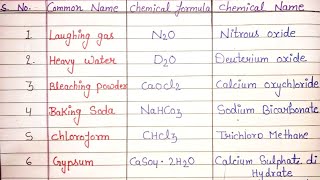 S. No. Common Name Chemical formula Chemical Name
1 Laughing gas N2O Nitrous oxide
2. Heavy Water D2O Deuterium oxide
3 Bleaching powder CaOCl2 Calcium oxychloride
4 Baking Soda NaHCO3 Sodium Bicarbonate
5 Chloroform CHCl3 Trichloro Methane
6 Gypsum CaSO4 · 2H2O Calcium Sulphate di
Hydrate